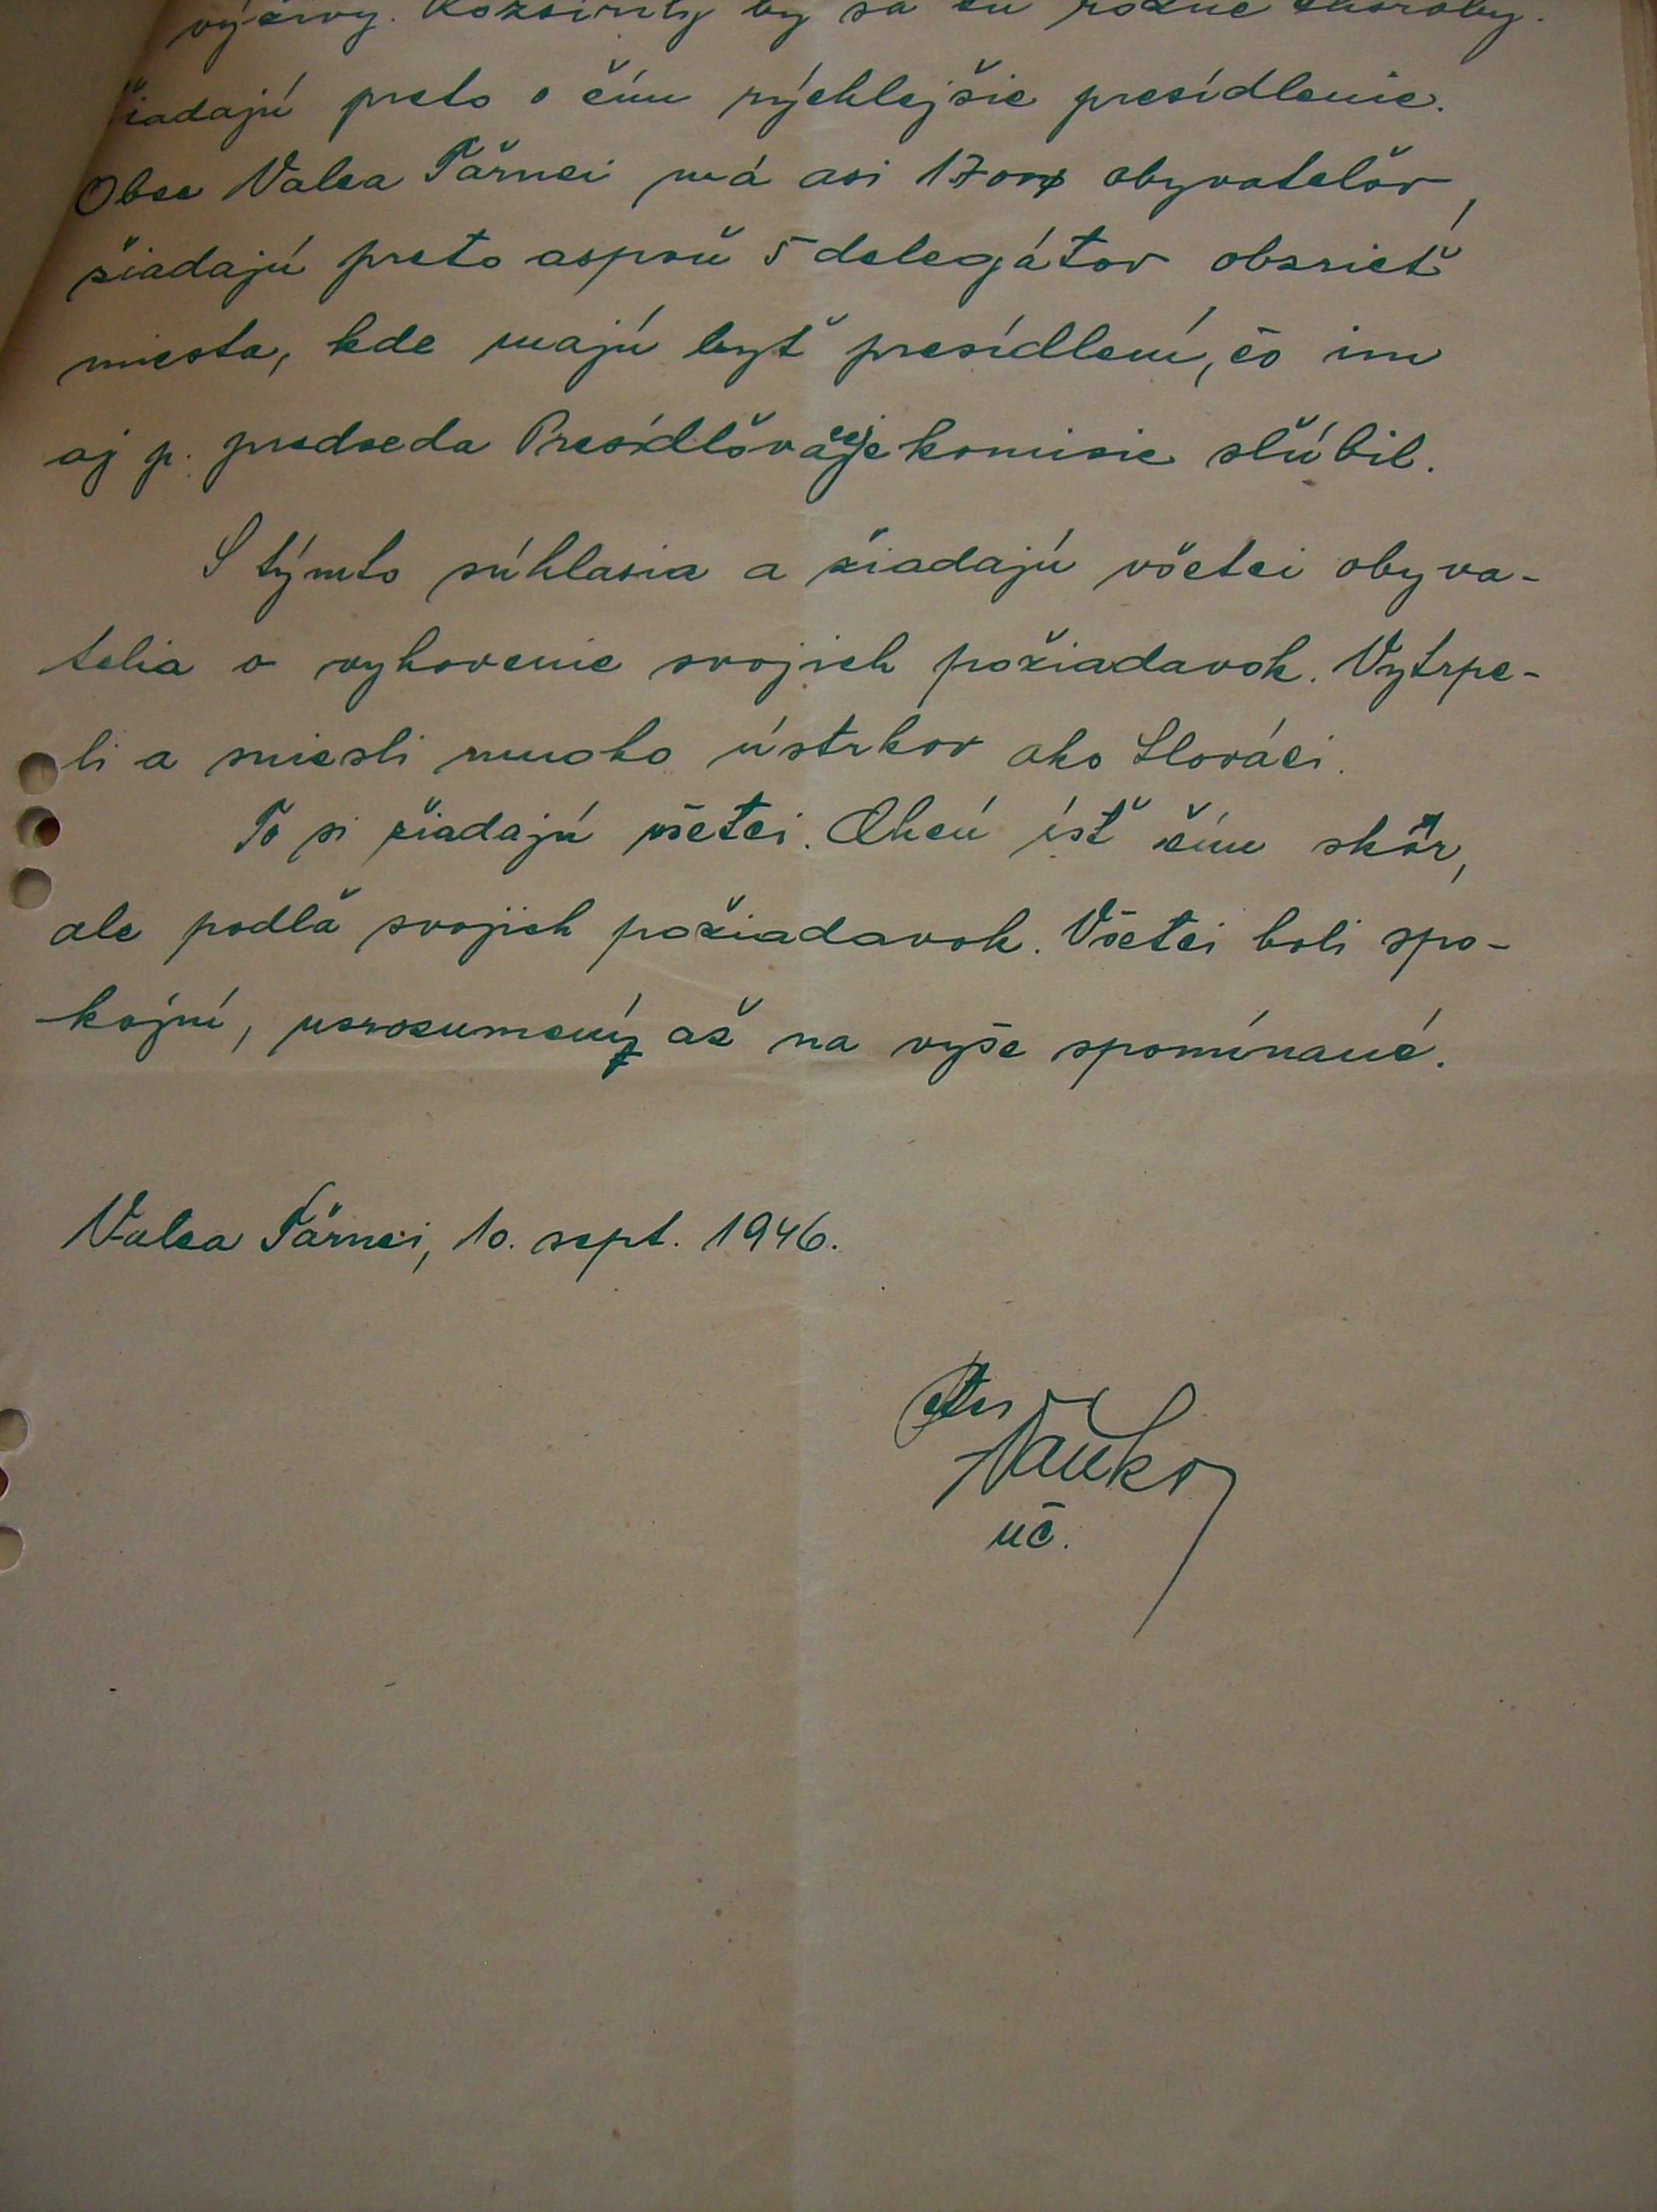 výživy. Rozšírily by sa tu rôzne choroby.
žiadajú preto o čím rýchlejšie presídlenie.
Obec Valea Tărnei má asi 1700 obyvateľov,
žiadajú preto aspoň 5 delegátov obzrieť
miesta, kde majú byť presídlení, čo im
aj p. predseda Presídlovacej komisie sľúbil.
S týmto súhlasia a žiadajú všetci obyva-
telia o vyhovenie svojich požiadavok. Vytrpe-
li a sniesli mnoho ústrkov ako Slováci.
To si žiadajú všetci. Chcú ísť čím skôr,
ale podľa svojich požiadavok. Všetci boli spo-
kojní, usrozumený až na vyše spomínané.
Valea Tărnei, 10. sept. 1946.
uč.